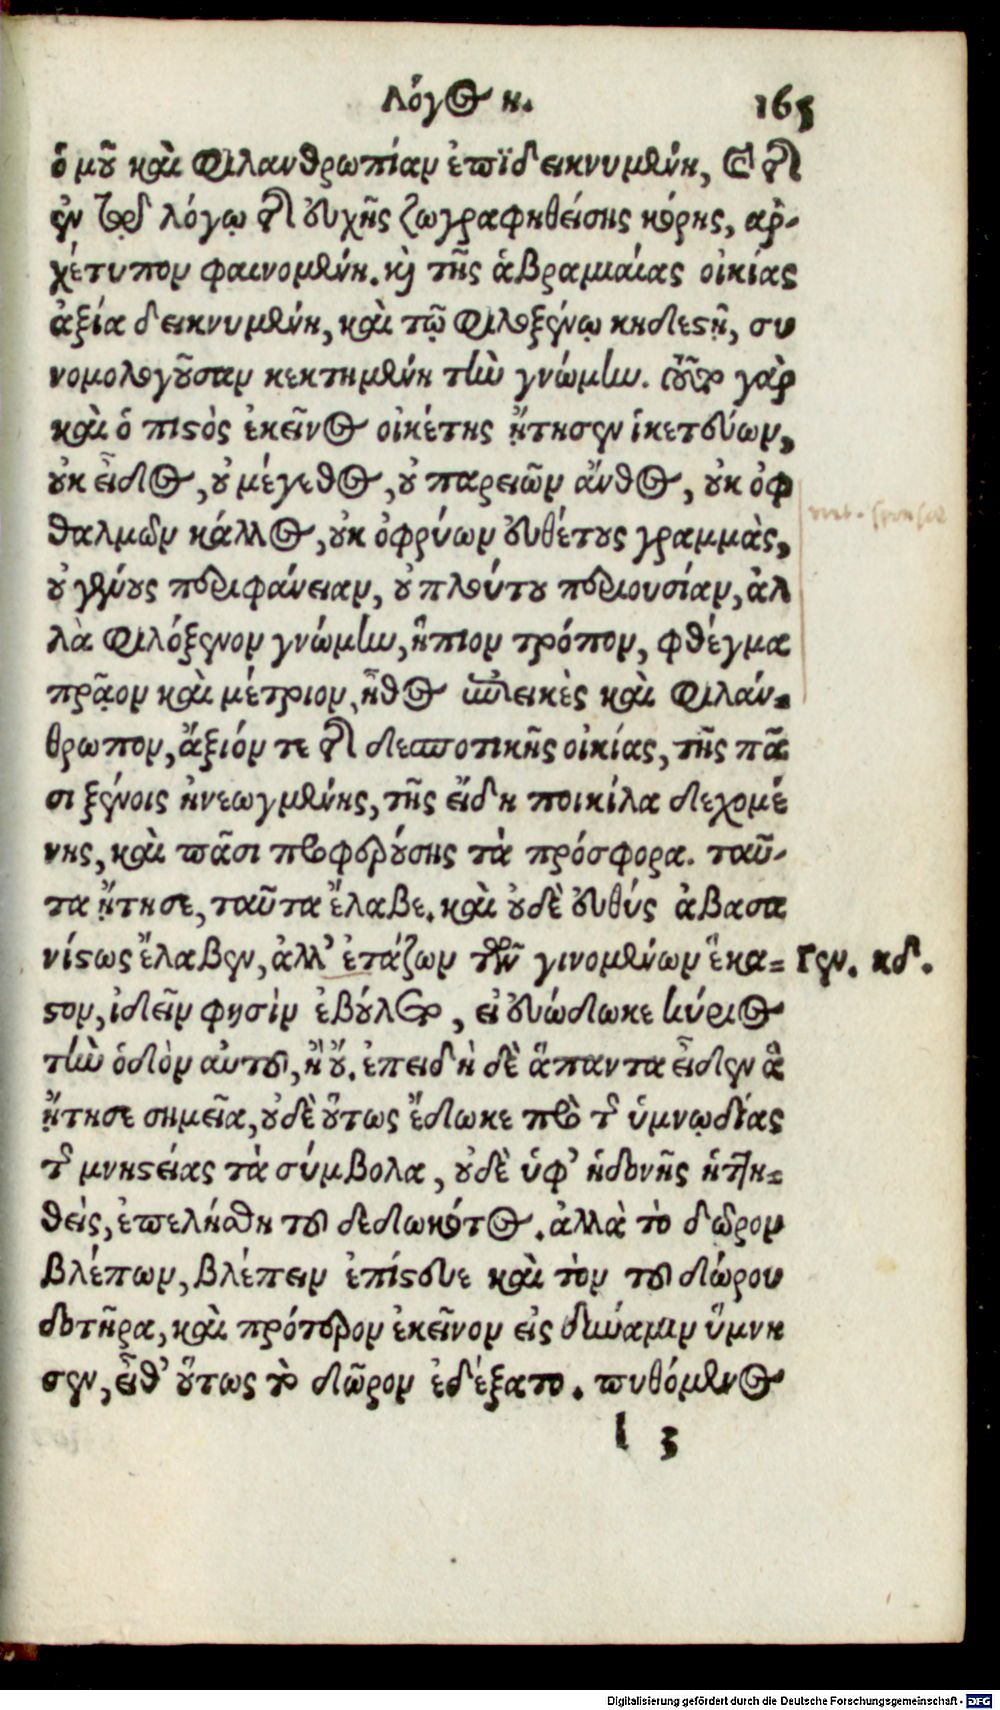 Λόγος η. 165
ὁμοῦ καὶ φιλανθρωπίαν ἐπιδεικνυμένη, καὶ τῆς
ἐν τῷ λόγῳ τῆς εὐχῆς ζωγραφηθείσης κόρης, ἀρ-
χέτυπον φαινομένη. καὶ τῆς ἁβραμιαίας οἰκίας
ἀξία δεικνυμένη, καὶ τῷ φιλοξένῳ κηδεστῇ, συ
νομολογοῦσαν κεκτημένη τὴν γνώμην. ταῦτα γὰρ
καὶ ὁ πιστὸς ἐκεῖνος οἰκέτης ᾔτησεν ἱκετεύων,
οὐκ εἶδος, οὐ μέγεθος, οὐ παρειῶν ἄνθος, οὐκ ὀφ
θαλμῶν κάλλος, οὐκ ὀφρύων εὐθέτους γραμμὰς,
οὐ γένους περιφάνειαν, οὐ πλούτου περιουσίαν, ἀλ
λὰ φιλόξενον γνώμην, ἤπιον τρόπον, φθέγμα
πρᾷον καὶ μέτριον, ἦθος ἐπιεικὲς καὶ φιλάν-
θρωπον, ἄξιόν τε τῆς δεσποτικῆς οἰκίας, τῆς πᾶ
σι ξένοις ἠνεωγμένης, τῆς εἴδη ποικίλα δεχομέ
νης, καὶ πᾶσι προφερούσης τὰ πρόσφορα. ταῦ-
τα ᾔτησε, ταῦτα ἔλαβε. καὶ οὐδὲ εὐθύς ἀβασα
νίστως ἔλαβεν, ἀλλ’ ἐτάζων τῶν γινομένων ἕκα- Γεν. κδ.
στον, ἰδεῖν φησὶν ἐβούλετο, εἰ εὐώδωκε κύριος
τὴν ὁδὸν αὐτοῦ, ἢ οὔ. ἐπειδὴ δὲ ἅπαντα εἶδεν ἃ
ᾔτησε σημεῖα, οὐδὲ οὕτως ἔδωκε πρὸ τῆς ὑμνῳδίας
τῆς μνηστείας τὰ σύμβολα, οὐδὲ ὑφ’ ἡδονῆς ἡττη-
θεὶς, ἐπελήσθη τοῦ δεδωκότος. ἀλλὰ τὸ δῶρον
βλέπων, βλέπειν ἐπίστευε καὶ τὸν τοῦ δώρου
δοτῆρα, καὶ πρότερον ἐκεῖνον εἰς δύναμιν ὕμνη
σεν, εἶθ’ οὕτως τὸ δῶρον ἐδέξατο. πυθόμενος
l 3
Digitalisierung gefördert durch die Deutsche Forschungsgemeinschaft - DFG